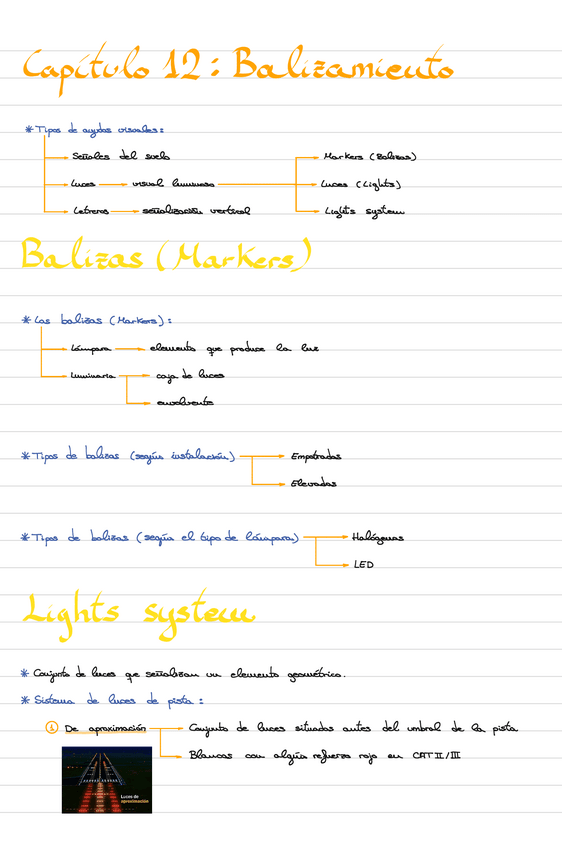 Capítulo 12: Balizamiento
* Tipos de ayudas visuales:
Señales del suelo
Markers (Balizas)
Luces visual luminoso
Luces (Lights)
Letreros señalización vertical
Lights system
Balizas (Markers)
* Las balizas (Markers):
Lámpara elemento que produce la luz
Luminaria caja de luces
envolvente
* Tipos de balizas (según instalación) Empotradas
Elevadas
* Tipos de balizas (según el tipo de lámpara) Halógenas
LED
Lights system
* Conjunto de luces que señalizan un elemento geométrico.
* Sistema de luces de pista:
1 De aproximación Conjunto de luces situadas antes del umbral de la pista
Blancas con algún refuerzo rojo en CAT II/III
Luces de
aproximación